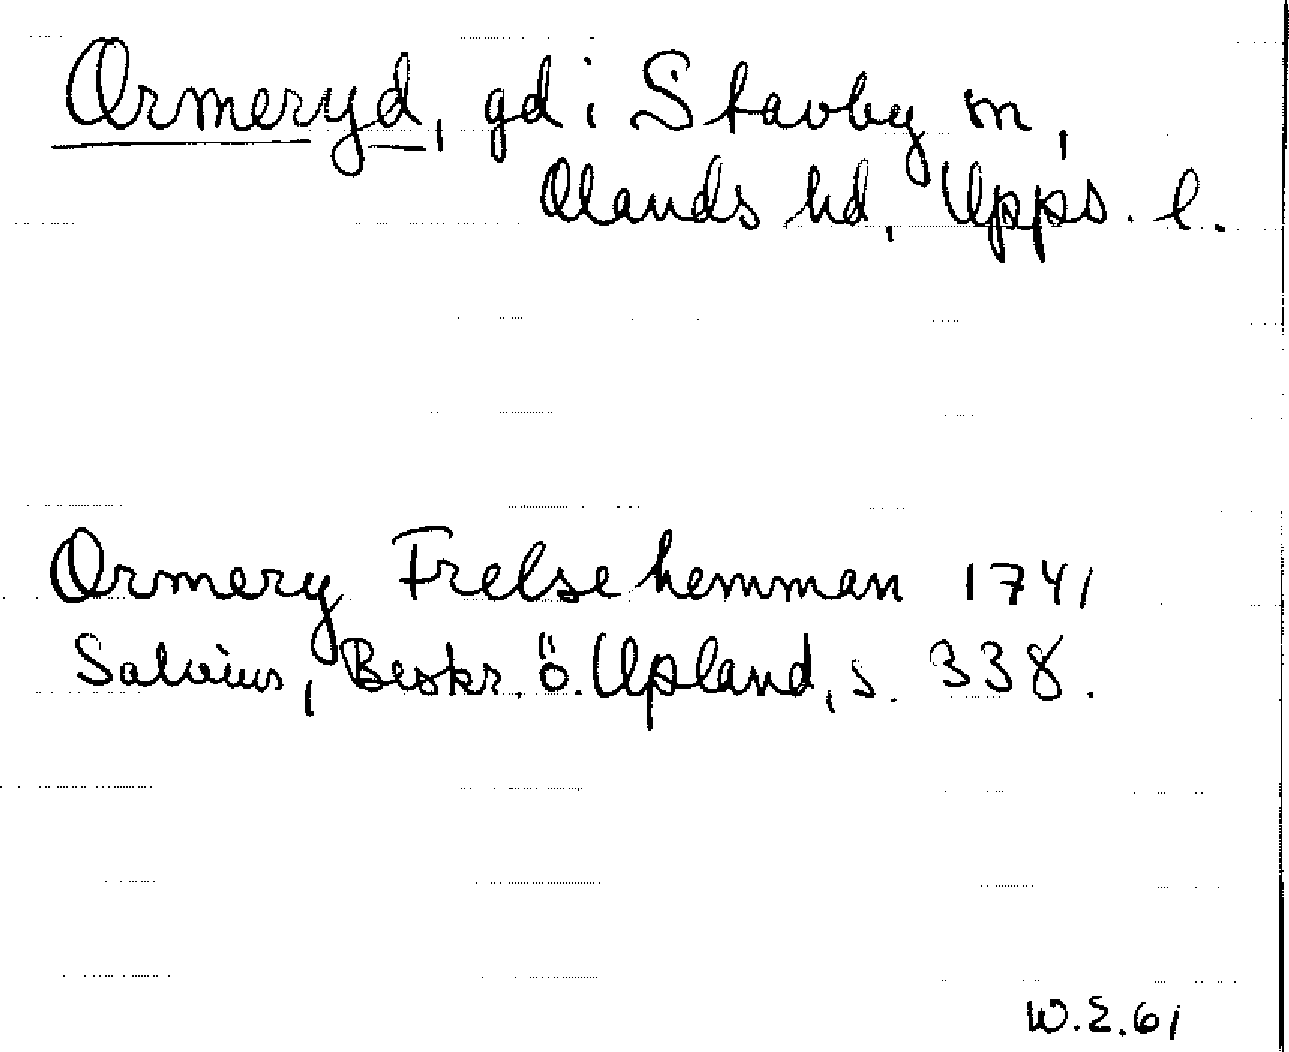 Ormeryd, gd i Stavby sn,
Olands hd, Upps. l.
Ormery Frelsehemman 1741
Salvius, Beskr. ö. Upland, s. 338.
W.E.61